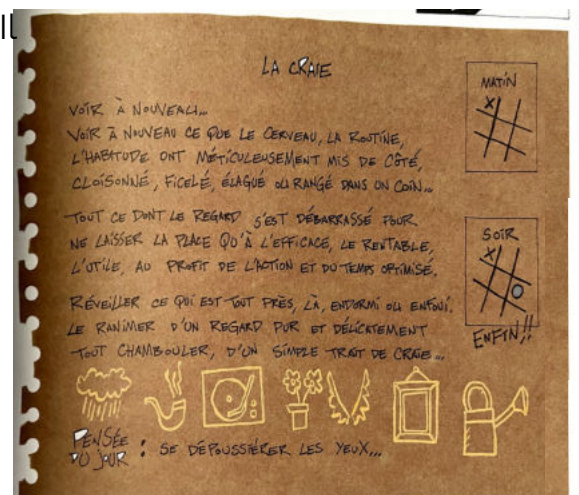 Il
LA CRAIE
MATIN
X
VOIR À NOUVEAU...
VOIR À NOUVEAU CE QUE LE CERVEAU, LA ROUTINE,
L'HABITUDE ONT MÉTICULEUSEMENT MIS DE CÔTÉ,
CLOISONNÉ, FICELÉ, ÉLAGUÉ OU RANGÉ DANS UN COIN...
TOUT CE DONT LE REGARD S'EST DÉBARRASSÉ POUR
NE LAISSER LA PLACE QU'À L'EFFICACE, LE RENTABLE,
L'UTILE, AU PROFIT DE L'ACTION ET DU TEMPS OPTIMISÉ.
SOIR
X
O
ENFIN!!
RÉVEILLER CE QUI EST TOUT PRÈS, LÀ, ENDORMI OU ENFOUI.
LE RANIMER D'UN REGARD PUR ET DÉLICATEMENT
TOUT CHAMBOULER, D'UN SIMPLE TRAIT DE CRAIE...
PENSÉE
DU JOUR : SE DÉPOUSSIÉRER LES YEUX...